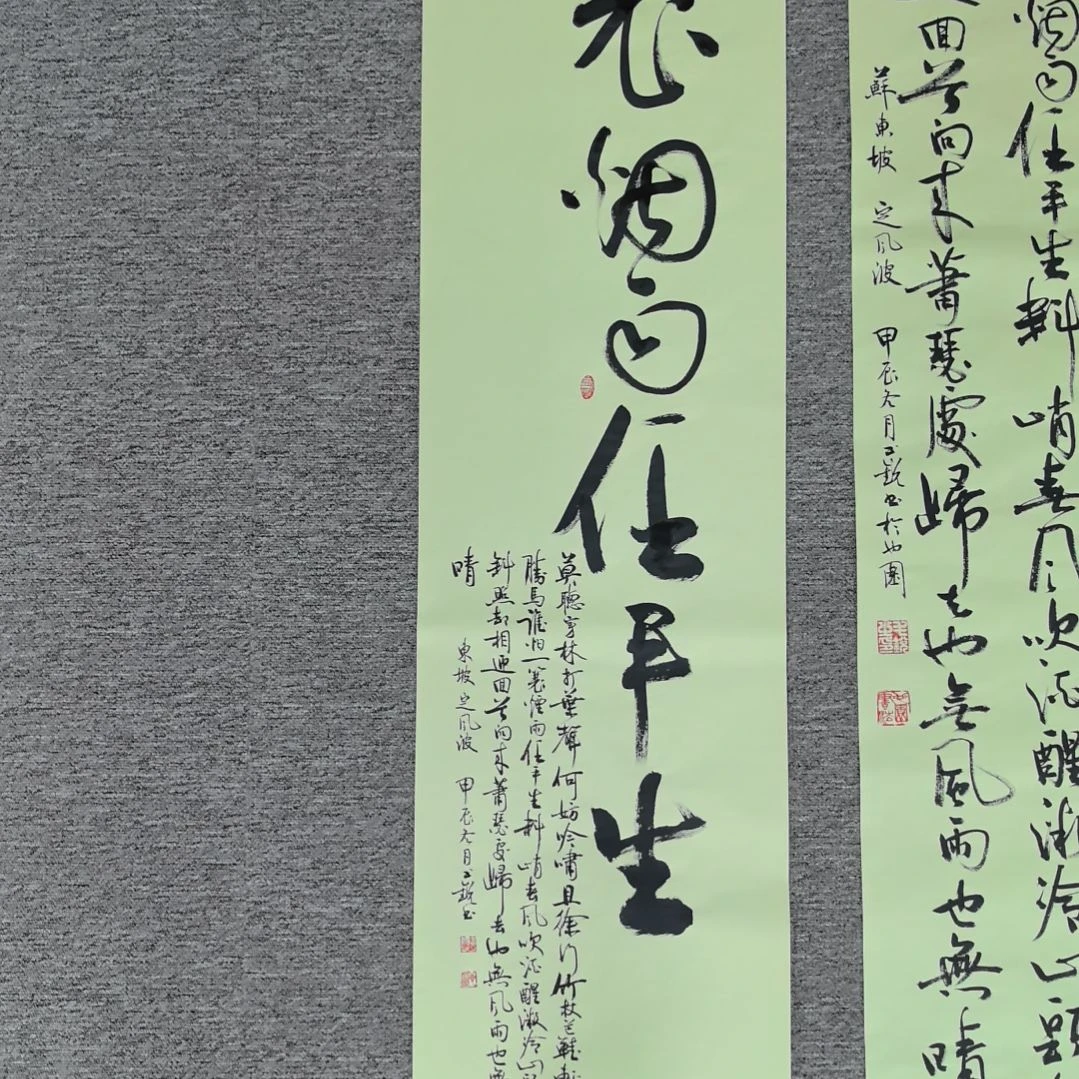 烟雨任平生料峭春風吹酒醒微冷山頭
回首向来蕭瑟處歸去也無風雨也無晴
蘇東坡 定風波 甲辰冬月 书於
蓑烟雨任平生
莫聽穿林打葉聲何妨吟嘯且徐行竹杖芒鞋輕
勝馬誰怕一蓑煙雨任平生料峭春風吹酒醒微冷山頭
斜照却相迎回首向来蕭瑟處歸去也無風雨也無
晴
東坡定風波 甲辰冬月 书